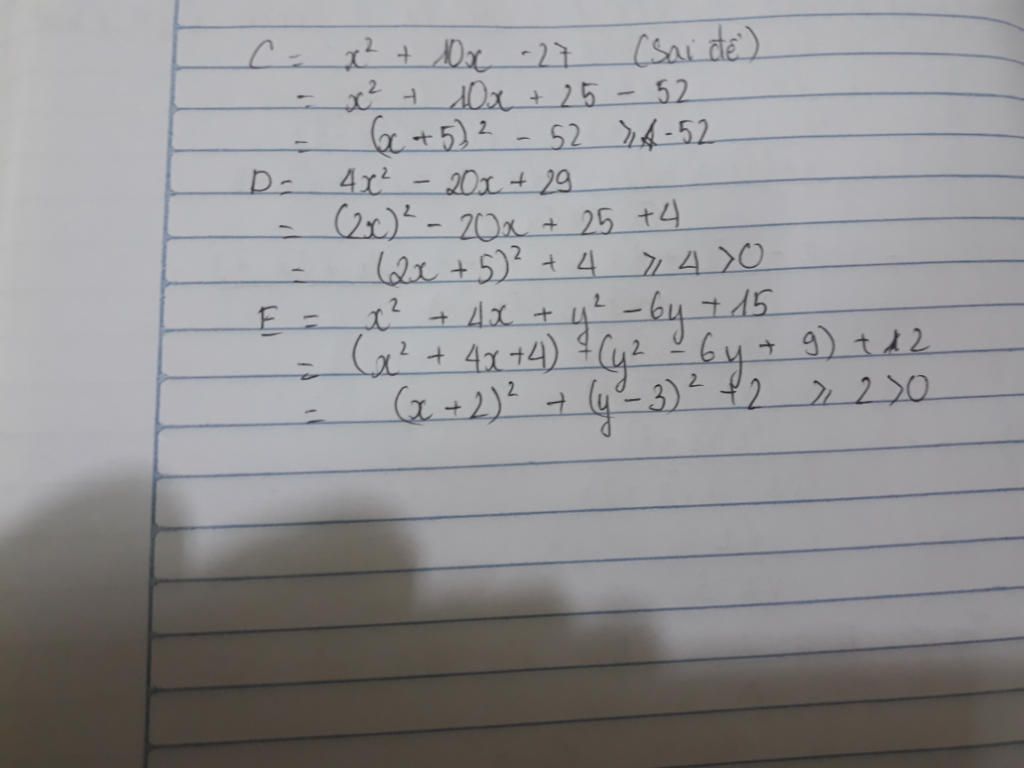 C = x² + 10x - 27 (Sai đề)
= x² + 10x + 25 - 52
= (x + 5)² - 52 ⩾ -52
D = 4x² - 20x + 29
= (2x)² - 20x + 25 + 4
= (2x + 5)² + 4 ⩾ 4 > 0
E = x² + 4x + y² - 6y + 15
= (x² + 4x + 4) + (y² - 6y + 9) + 2
= (x + 2)² + (y - 3)² + 2 ⩾ 2 > 0